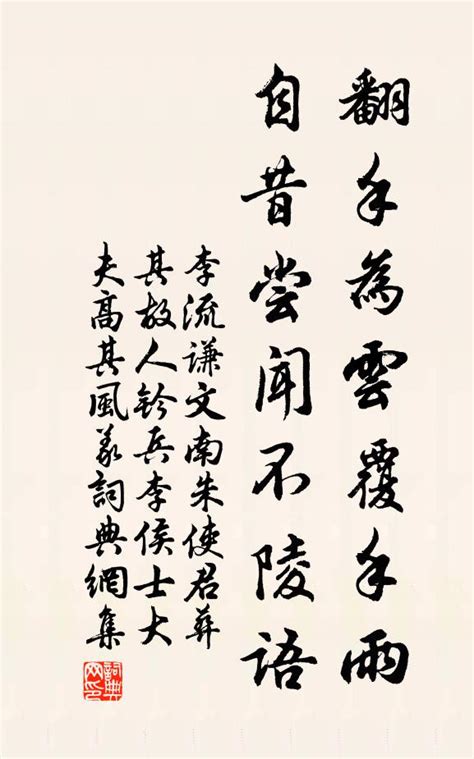 翻手為雲覆手雨
自昔嘗聞不陵語
李流謙文南朱使君葬
其故人鈐兵李侯士大
夫高其風義詞典網集
詞典网印